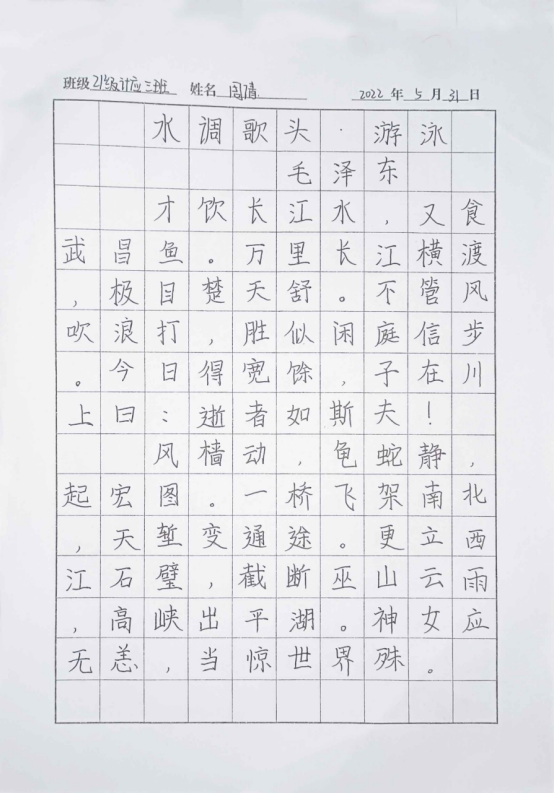 班级 21级计应三班 姓名 周倩 2022 年 5 月 31 日
水调歌头·游泳
毛泽东
才饮长江水，又食
武昌鱼。万里长江横渡
，极目楚天舒。不管风
吹浪打，胜似闲庭信步
。今日得宽馀，子在川
上曰：逝者如斯夫！
风樯动，龟蛇静，
起宏图。一桥飞架南北
，天堑变通途。更立西
江石壁，截断巫山云雨
，高峡出平湖。神女应
无恙，当惊世界殊。